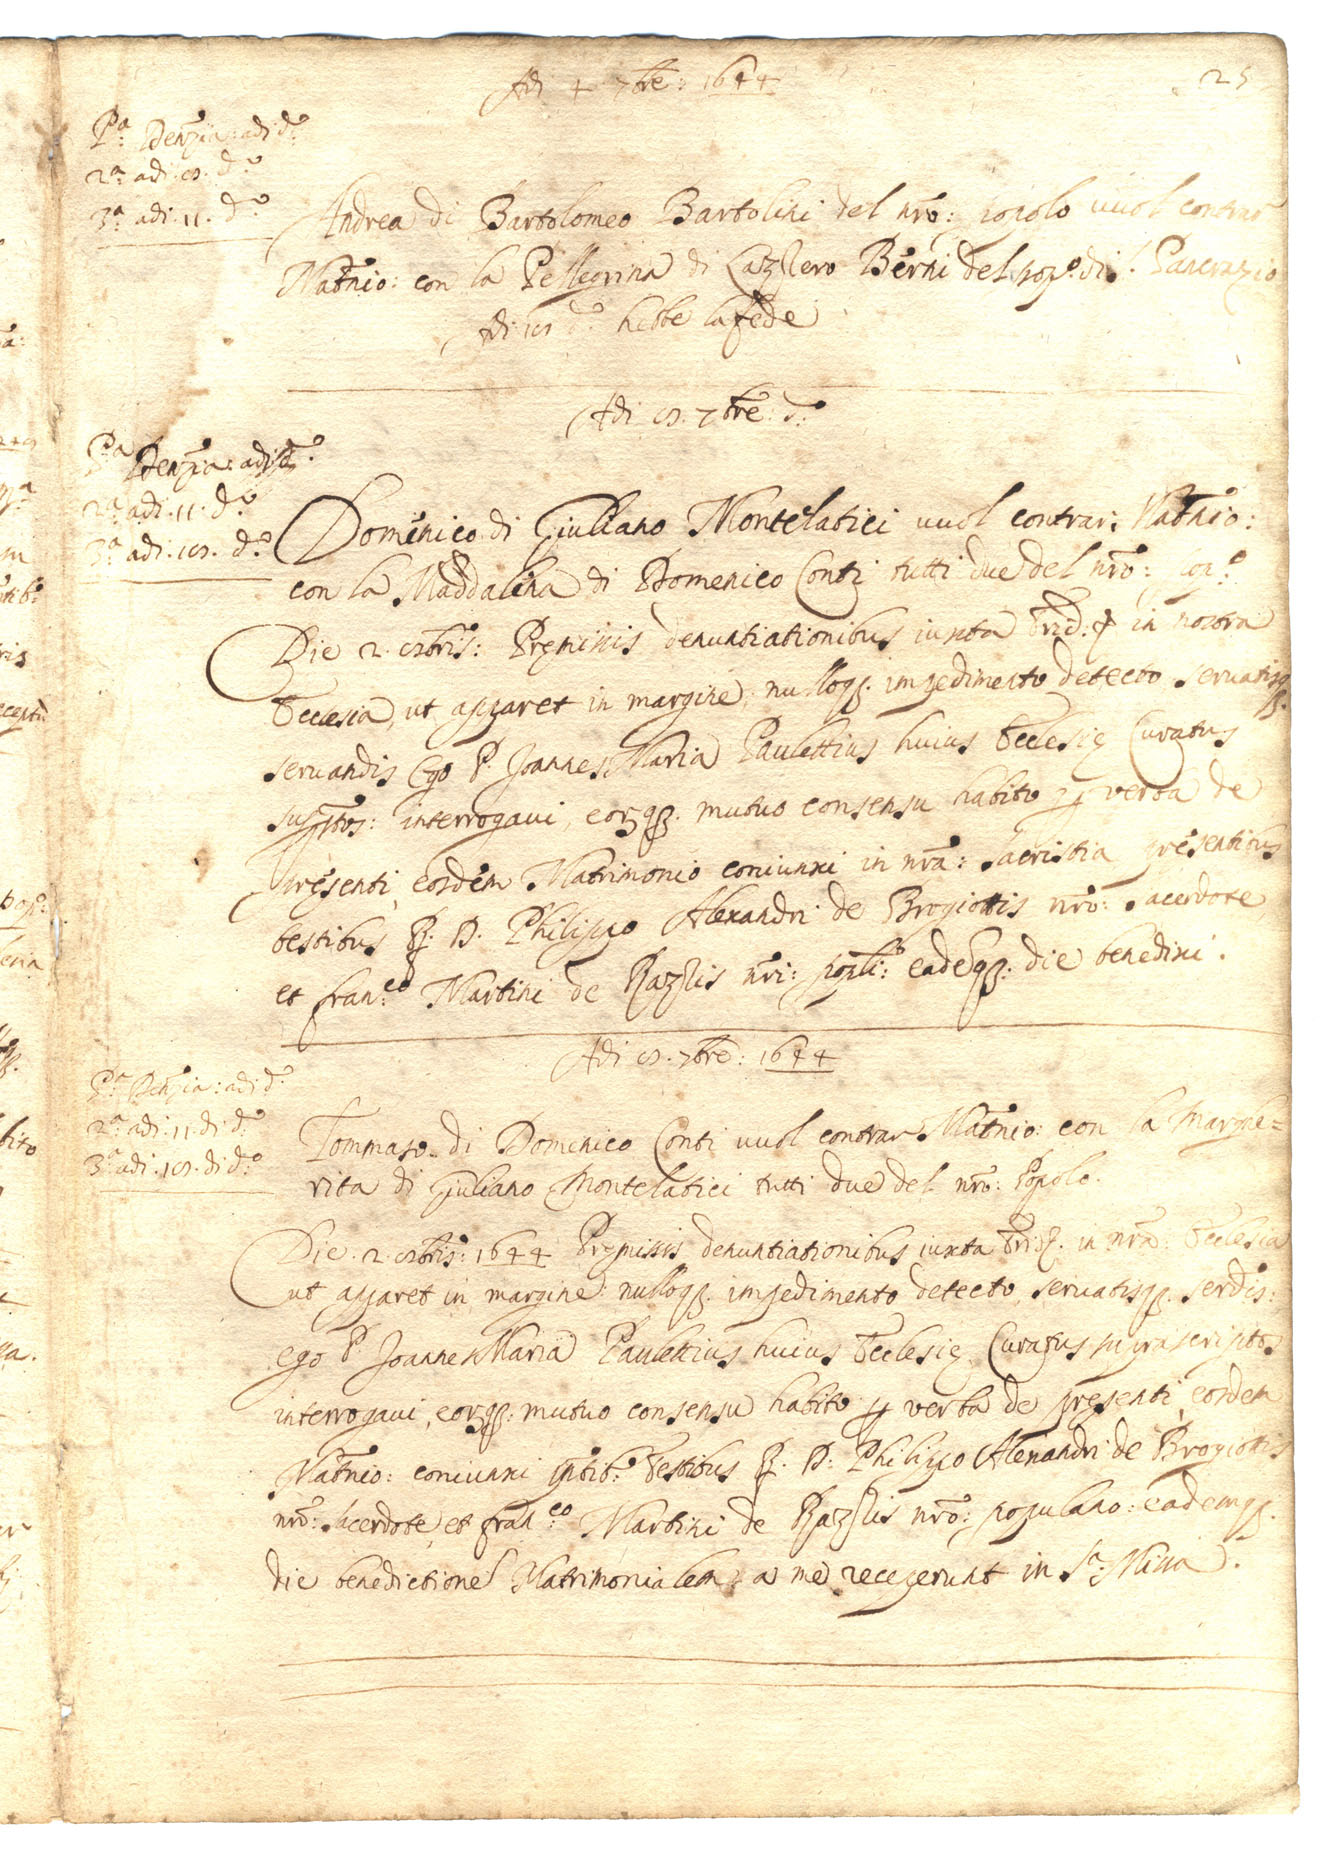 Adi 4 7bre: 1644
25
Pa: Denzia: adi do:
2a: adi .8. do:
3a: adi .11. do:
Andrea di Bartolomeo Bartolini del nro: popolo vuol contrar
Matnio: con la Pellegrina di Lazzero Berni del popo: di S. Pancrazio
Adi 18 do: hebbe la fede
Adi 8. 7bre: do:
Pa: Denzia: adi do:
2a: adi .11. do:
3a: adi .18. do:
Domenico di Giuliano Montelatici vuol contrar: Matnio:
con la Maddalena di Domenico Conti tutti due del nro: popo:
Die 2. 8bris: Premissis denuntiationibus iuxta Trid: in nostra
Ecclesia, ut apparet in margine, nulloq; impedimento detecto servatisq;
servandis Ego P. Joannes Maria Paulettius huius Ecclesie Curatus
suptos: interrogavi, eorq; mutuo consensu habito p verba de
presenti, eosdem Matrimonio coniunxi in nra: sacristia presentibus
testibus R. D. Philippo Alexandri de Brogiottis nro: sacerdote,
et Franco: Martini de Razzis nri: popli: eadeq; die benedixi.
Adi 8. 7bre: 1644
Pa: Denzia: adi do:
2a: adi .11. di do:
3a: adi .18. di do:
Tommaso di Domenico Conti vuol contrar Matnio: con la Marghe=
rita di Giuliano Montelatici tutti due del nro: Popolo.
Die .2. 8bris: 1644 Premissis denuntiationibus iuxta Tri: in nra: Ecclesia
ut apparet in margine: nulloq; impedimento detecto, servatisq; serdis:
ego P. Joannes Maria Paulettius huius Ecclesie Curatus suprascriptos
interrogavi, eorq; mutuo consensu habito p verba de presenti, eosdem
Matnio: coniunxi pntib: testibus R. D. Philippo Alexandri de Brogiottis
nro: sacerdote, et Franco: Martini de Razzis nro: populano: eademq;
die benedictione Matrimonialem a me receperunt in Sa: Missa.